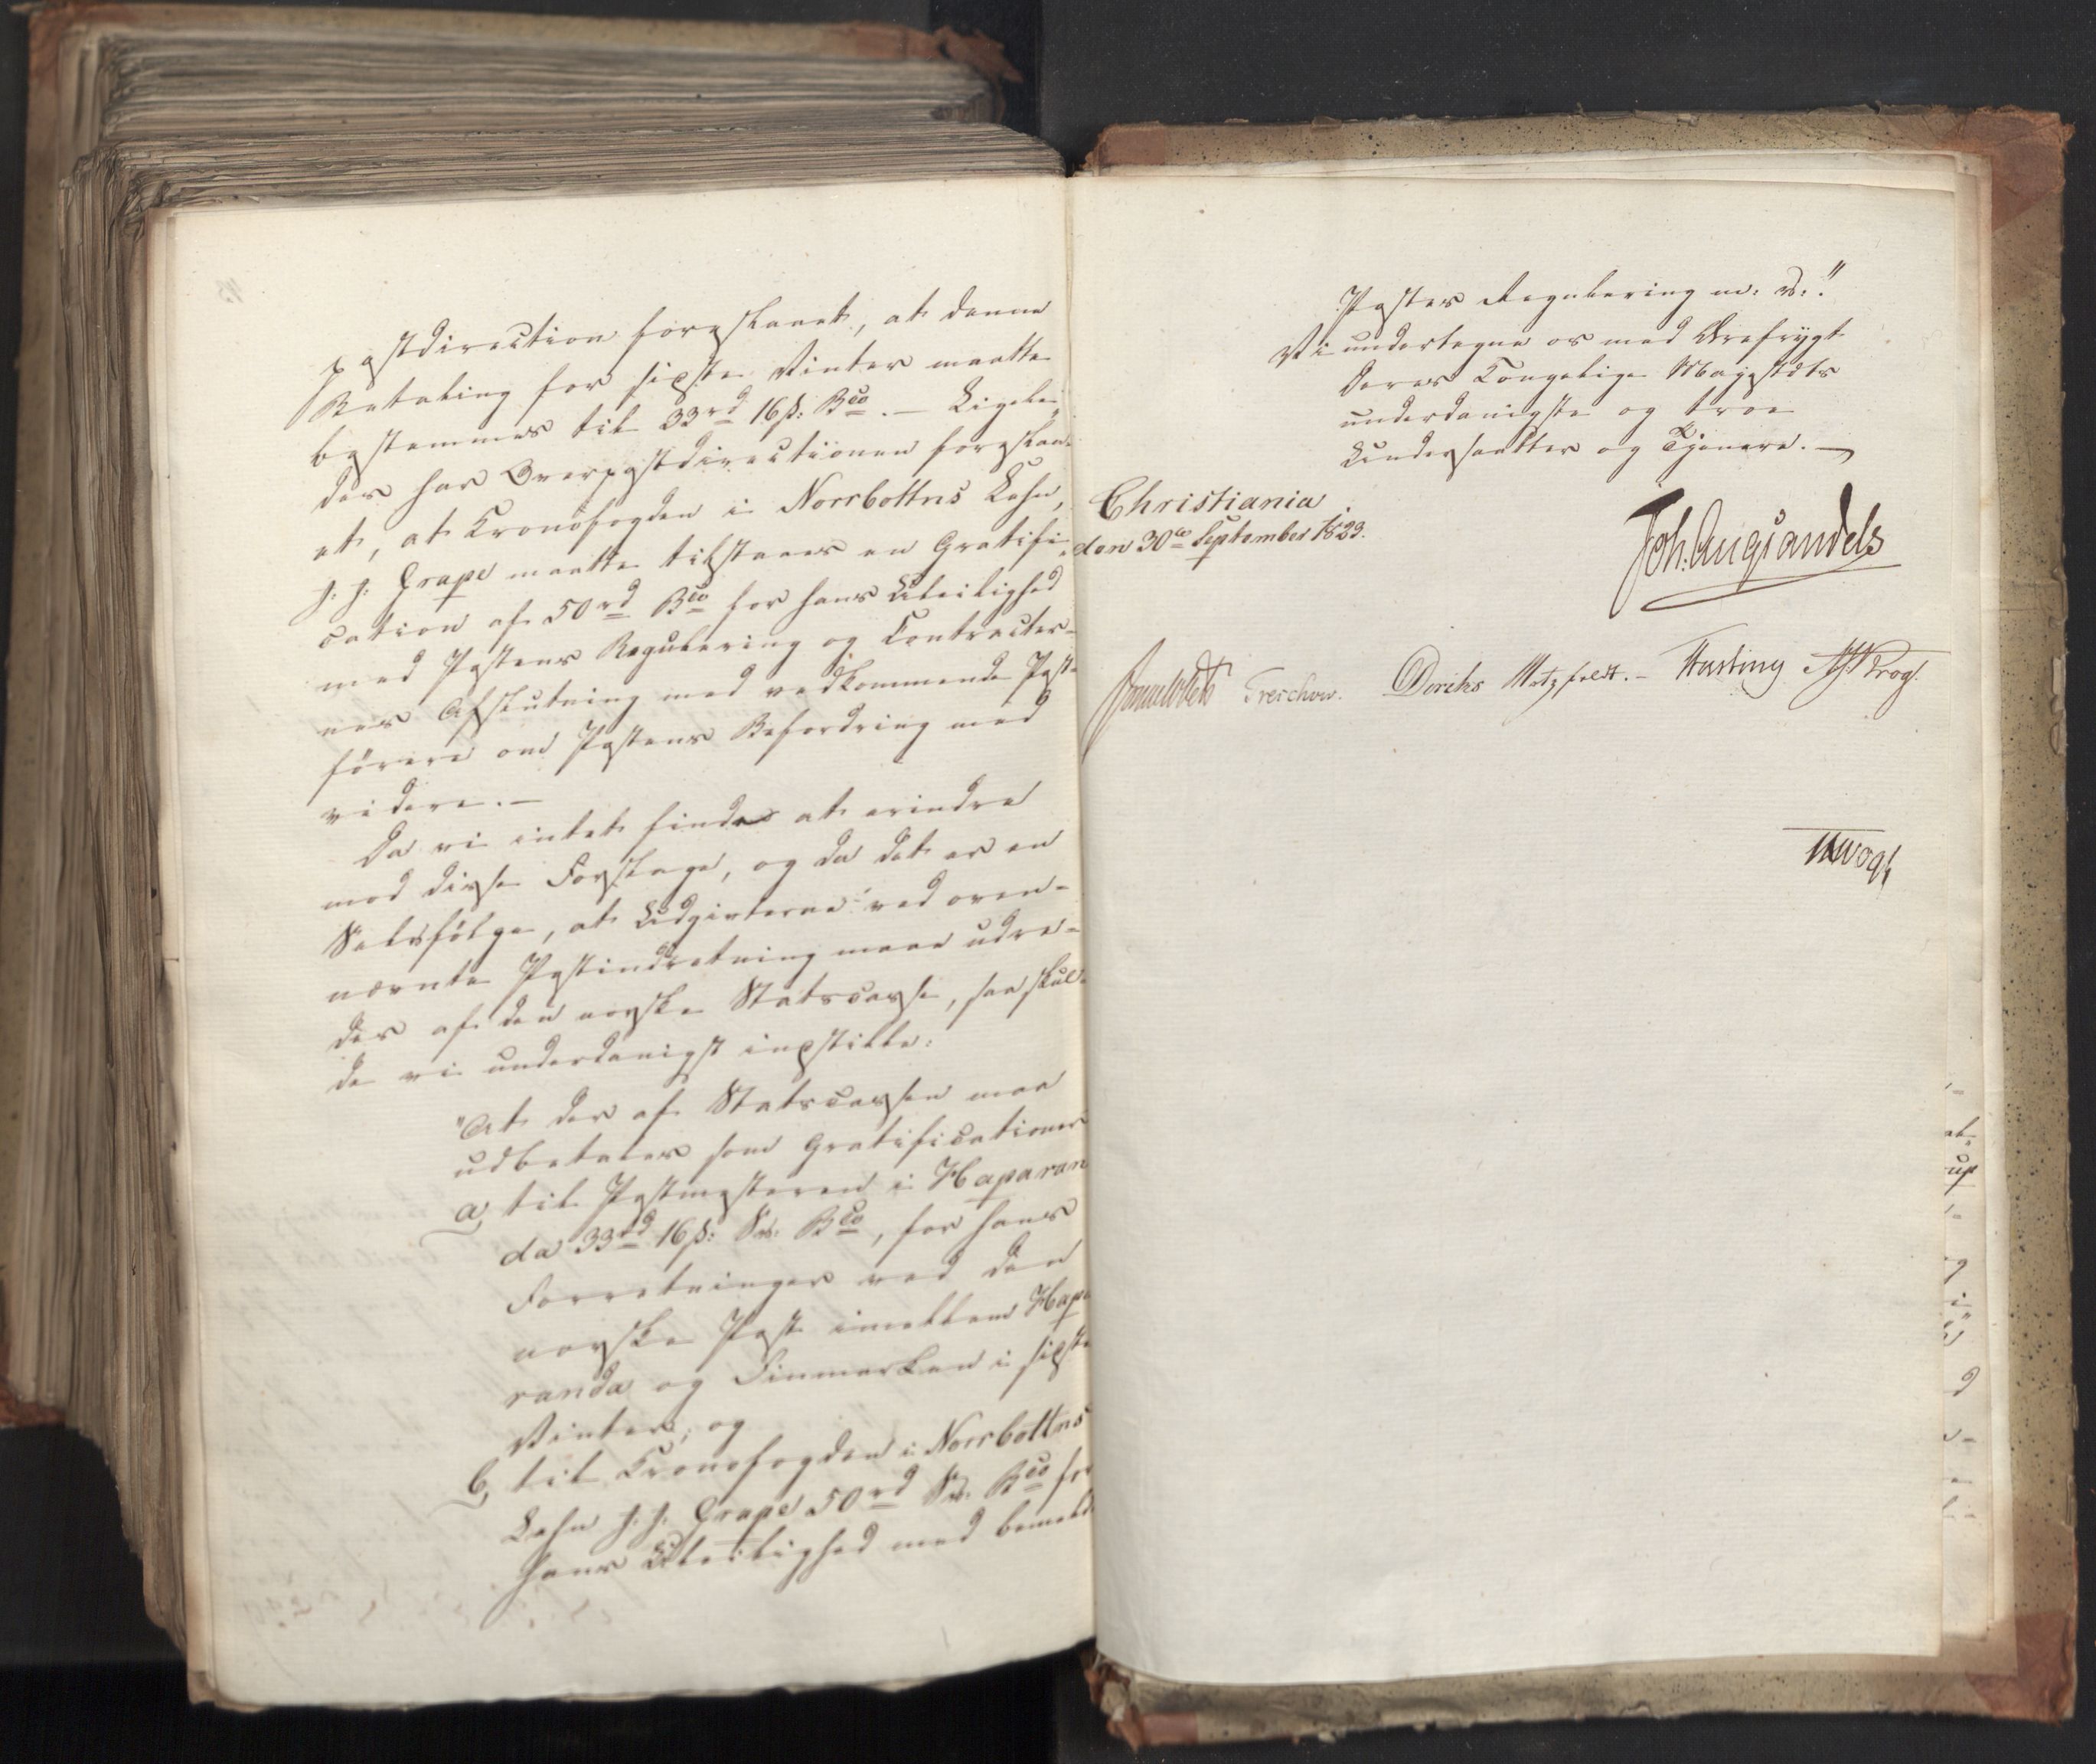 postdirection foreslaaet, at denne
Betaling for sidste Vinter maatte
bestemmes til 33rd 16ß: Bco. — Ligele-
des har Overpostdirectionen foreslaa-
et, at Kronofogden i Norrbottns Lehn,
J. J. Grape maatte tilstaaes en Gratifi-
cation af 50rd Bco for hans Uleilighed
med Postens Regulering og Contracter-
nes Afslutning med vedkommende Post-
førere om Postens Befordring med
videre. —
Da vi intet finde at erindre
mod disse Forslage, og da det er en
Selvfølge, at Udgivterne ved oven-
nævnte Postindretning maae udre-
des af den norske Statscasse, saa skul-
de vi underdanigst indstille:
"At der af Statscassen maa
udbetales som Gratificationer
a, til Postmesteren i Haparan
da 33rd 16ß: Sv. Bco, for hans
Forretninger ved den
norske Post imellem Hapa
randa og Finmarken i sidste
Vinter, og
b, til Kronofogden i Norrbottns
Lehn J. J. Grape 50rd Sv. Bco for
hans Uleilighed med bemeldte
Postes Regulering m: v:."
Vi undertegne os med Ærefrygt
Deres Kongelige Majestæts
underdanigste og troe
Undersaatter og Tjenere. —
Christiania
den 30te September 1823.
Joh. Aug Sandels
Sommerhielm Treschow. Diriks Motzfeldt. — Fasting J. H. Krog.
Vogt